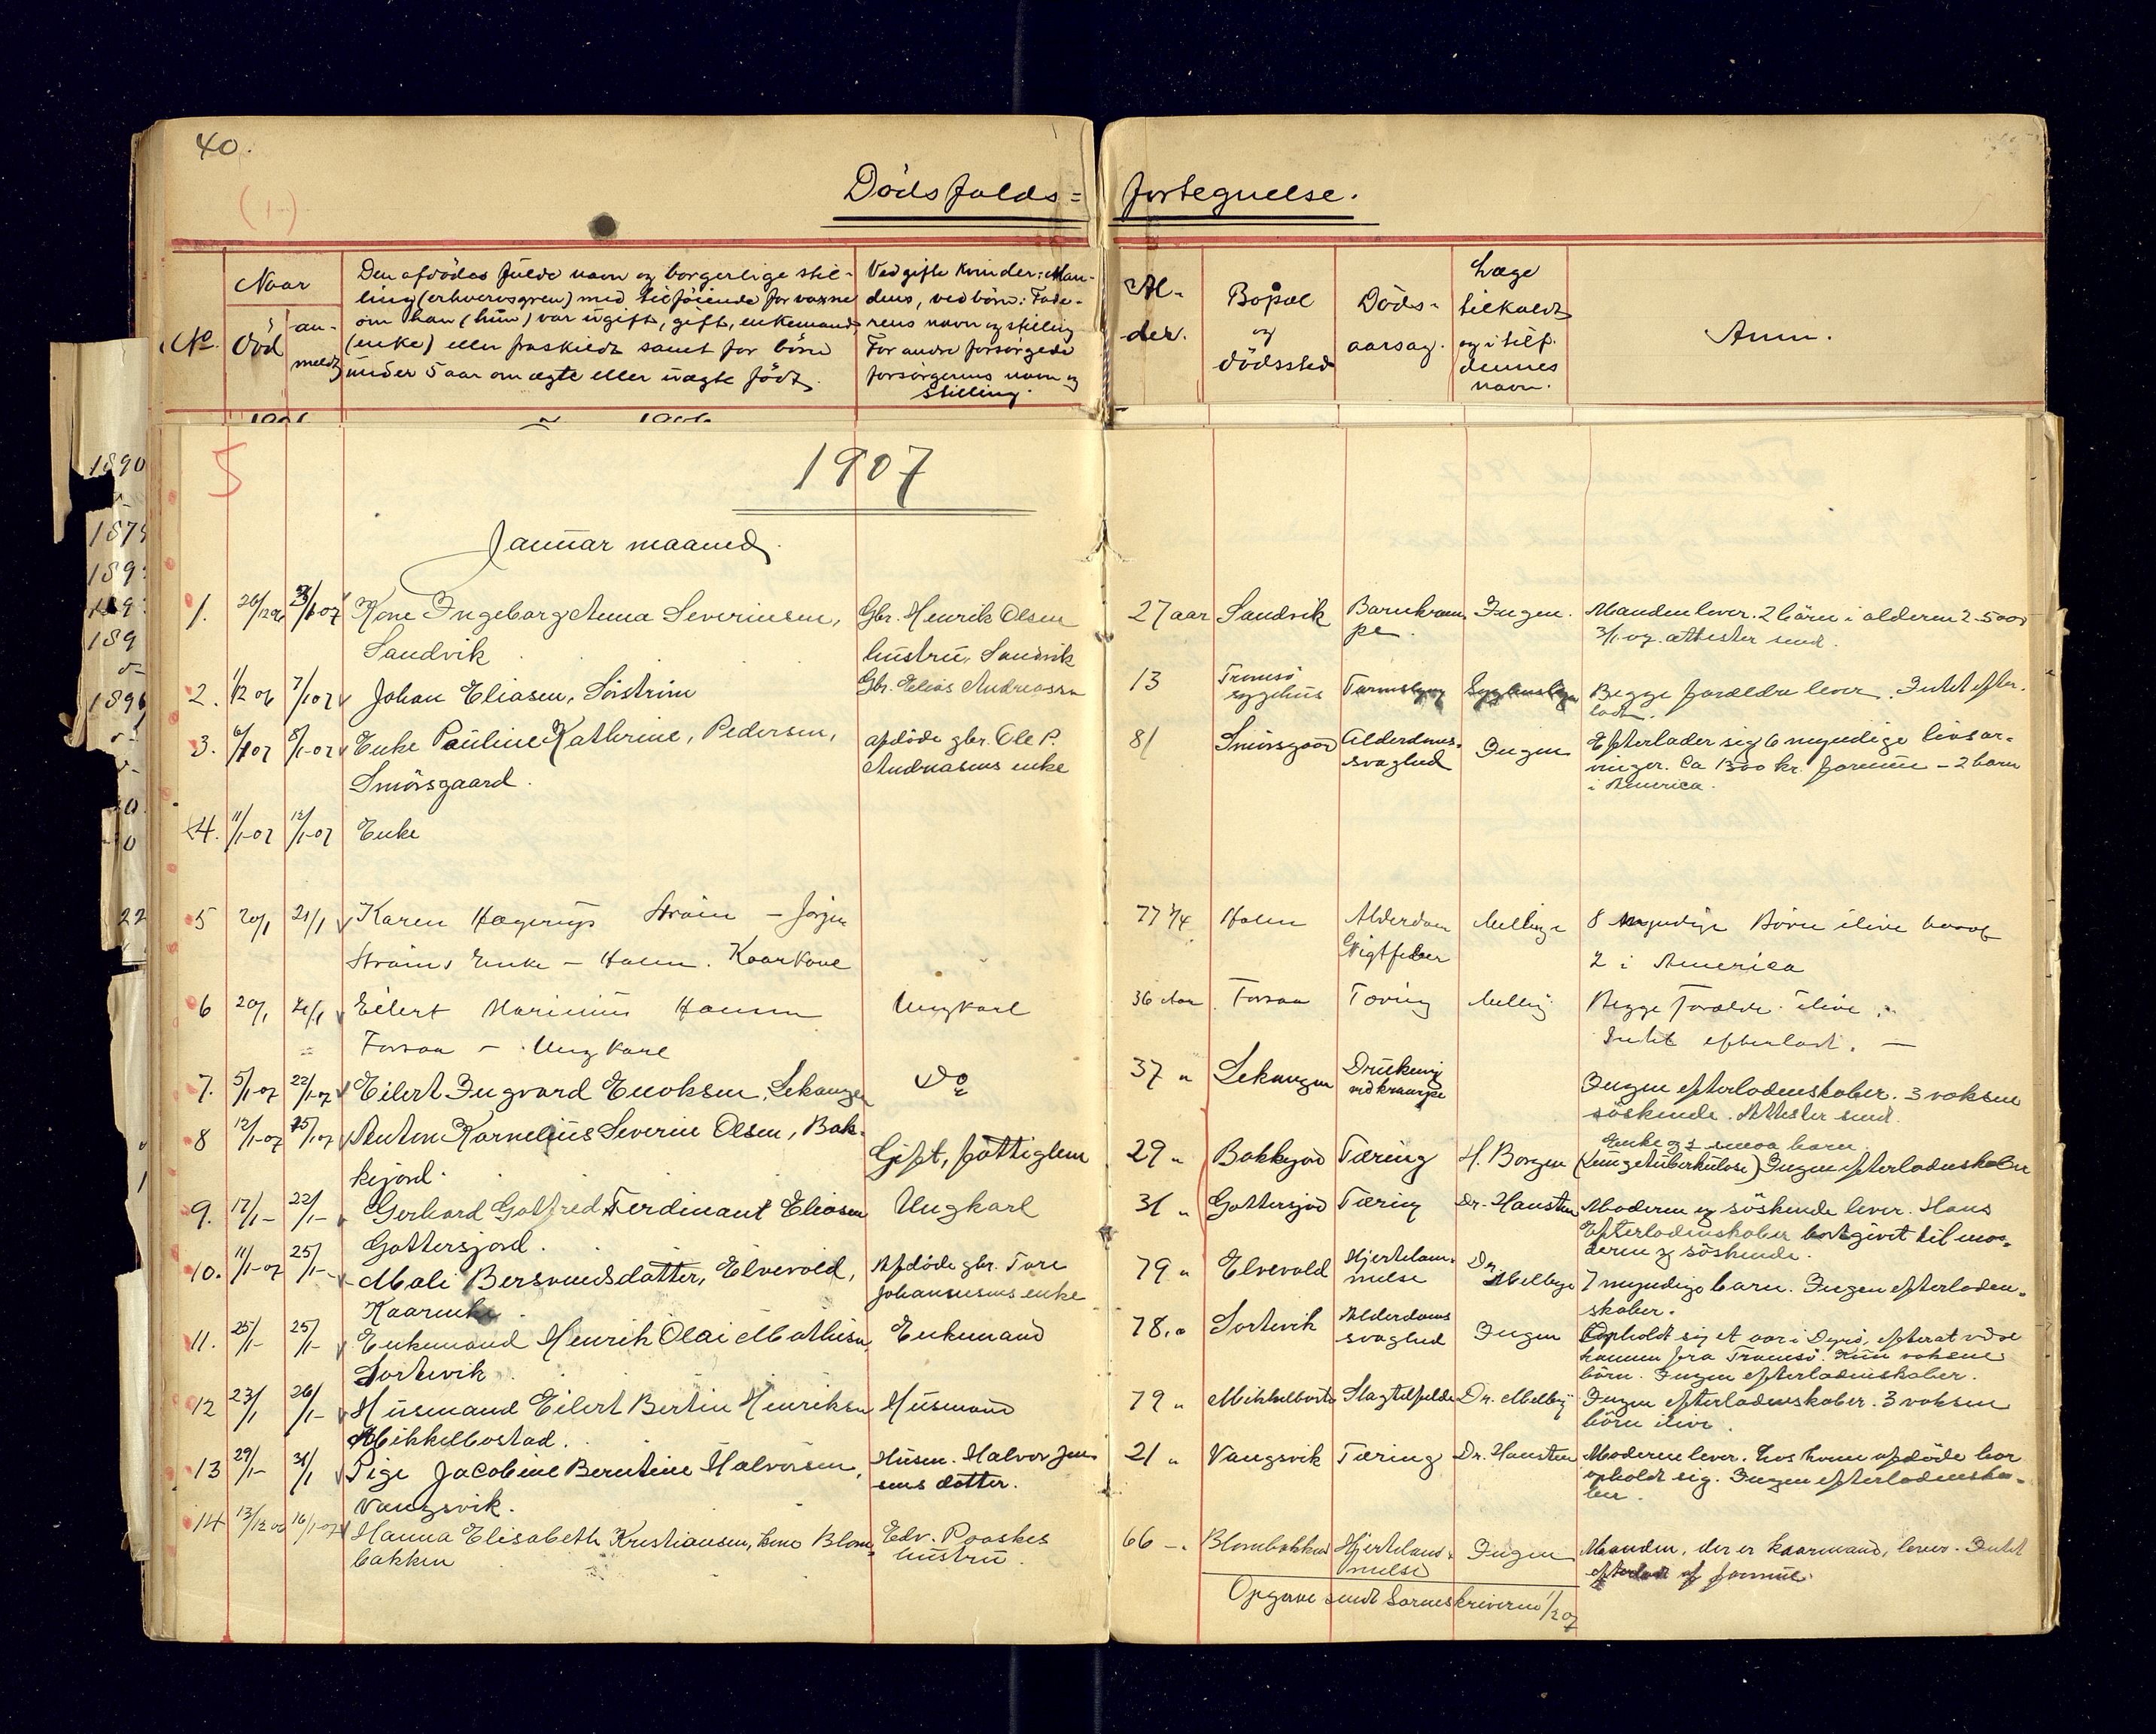 40.
(1-)
Dödsfalds=fortegnelse.
No.
Naar
död
an-
meldt
Den afdödes fulde navn og borgerlige stil-
ling (erhvervsgren) med tilföiende for voxne
om han (hun) var ugift, gift, enkemand
(enke) eller fraskildt samt for börn
under 5 aar om ægte eller uægte född.
Ved gifte kvinder: Man-
dens, ved börn: Fade-
rens navn og stilling
For andre forsörgede
forsörgerens navn og
stilling.
Al-
der.
Bopæl
og
dödssted
Döds-
aarsag.
Læge
tilkaldt
og i tilf.
dennes
navn.
Anm.
5
1907
Januar maaned.
1. 26/12 06 3/1 07 Kone Ingeborg Anna Severinsen, Gbr. Henrik Olsen 27 aar Sandvik Barnkram- Ingen. Manden lever. 2 börn i alderen 2-5 aar
Sandvik hustru, Sandvik pe. 3/1 07. attester send.
2. 1/12 06 7/1 07 Johan Eliasen, Sörström Gbr. Elias Andreassen 13 Tromsö sygehus Begge forældre lever. Intet efter-
ladt.
3. 6/1 07 8/1-07 Enke Pauline Kathrine, Pedersen, afdöde gbr. Ole P. 81 Smörsgaard Alderdoms- Ingen Efterlader sig 6 myndige livsar-
Smörsgaard. Andreasens enke svaghed vinger. Ca 1300 kr. formue - 2 barn
i America.
4. 11/1-07 12/1-07 Enke
5 20/1 21/1 Karen Hagerups Ström - Jörgen 77 3/4 Holm Alderdom Melbye 8 myndige Börn ilive hvoraf
Ströms Enke - Holm. Kaarkone Gigtfeber 2 i America
6 20/1 21/1 Eilert Marinius Hansen Ungkarl 36 Aar Forsaa Tæring Melbye Begge Forældre ilive.
Forsaa - Ungkarl Intet efterladt. -
7. 5/1-07 22/1-07 Eilert Ingvard Enoksen, Lekangen Do 37 " Lekangen Drukning
ved krampe Ingen efterladenskaber. 3 voksne
söskende. Attester send.
8 12/1-07 15/1 07 Anton Kornelius Severin Olsen, Bak- Gift, fattiglem 29 " Bakkejord Tæring H. Borgen Enke og smaa barn.
kejord. (Lungetuberkulose) Ingen efterladenskaber
9. 17/1- 22/1- Gerhard Gotfred Ferdinant Eliasen Ungkarl 31 " Gottersjord Tæring Dr. Hansteen Moderen og söskende lever. Hans
Gottersjord. Efterladenskaber bortgivet til mo-
deren og söskende.
10. 11/1-07 25/1- Mali Bersvendsdatter, Elvevold, Afdöde gbr. Tore 79 " Elvevold Hjertelam- Dr. Melbye 7 myndige barn. Ingen efterladen-
Kaarenke Johannesens enke melse skaber.
11. 25/1- 25/1- Enkemand Henrik Olai Mathisen Enkemand 78 " Sortevik Alderdoms Ingen Opholdt sig et aar i Dyrö, efterat være
Sortevik svaghed kommen fra Tromsö. Kun voksne
börn. Ingen efterladenskaber.
12 23/1 26/1- Husmand Eilert Bertin Henriksen Husmand 79 " Mikkelbostad Slagtilfelde Dr. Melby Ingen efterladenskaber. 3 voksne
Mikkelbostad. börn ilive.
13 29/1- 31/1 Pige Jacobine Berntine Halvorsen, Husm. Halvor Jen- 21 " Vangsvik Tæring Dr. Hansteen Moderen lever, hos hvem afdöde har
Vangsvik. sens datter. opholdt sig. Ingen efterladenska-
ber.
14 13/12 06 16/1-07 Hanna Elisabeth Kristiansen, kone Blom- Edv. Paaskes 66 - " Blombakken Hjertelam- Ingen Manden, der er kaarmand, lever. Intet
bakken hustru. melse efterladt af formue.
Opgave sendt Sorenskriveren 1/2 07